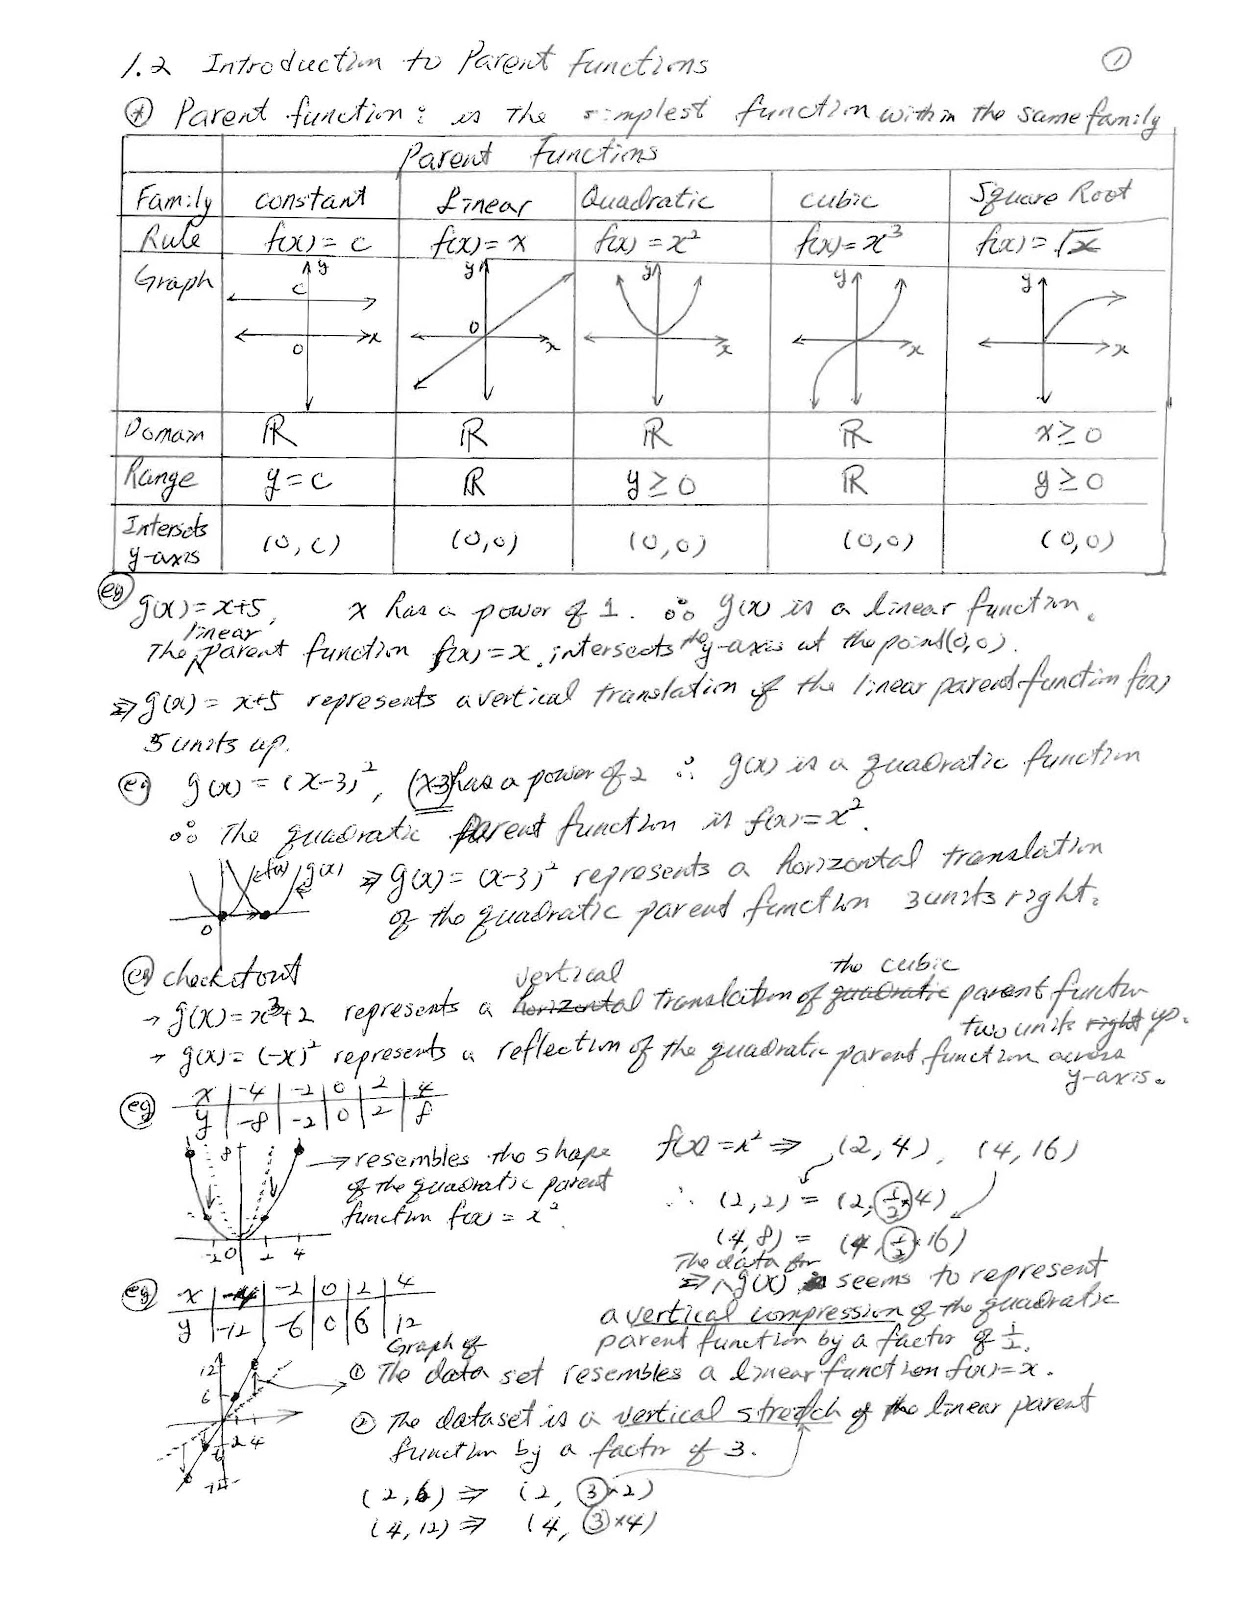 1.2 Introduction to Parent Functions ①
* Parent function: is The simplest function within The same family
Parent Functions
Family constant Linear Quadratic cubic Square Root
Rule f(x) = c f(x) = x f(x) = x² f(x) = x³ f(x) = √x
Graph y C x 0 y 0 x y x y x y x
Domain ℝ ℝ ℝ ℝ x ≥ 0
Range y = c ℝ y ≥ 0 ℝ y ≥ 0
Intersets y-axis (0, c) (0,0) (0,0) (0,0) (0,0)
eg g(x) = x+5, x has a power of 1. ∴ g(x) is a linear function.
The linear parent function f(x) = x intersects the y-axis at the point (0,0).
⇒ g(x) = x+5 represents a vertical translation of the linear parent function f(x)
5 units up.
eg g(x) = (x-3)², (x-3) has a power of 2 ∴ g(x) is a quadratic function
∴ The quadratic parent function is f(x) = x².
f(x) g(x) ⇒ g(x) = (x-3)² represents a horizontal translation
0 of the quadratic parent function 3 units right.
eg check it out
→ g(x) = x³+2 represents a vertical translation of the cubic parent function
two units up.
→ g(x) = (-x)² represents a reflection of the quadratic parent function across
y-axis.
eg x -4 -2 0 2 4
y -8 -2 0 2 8
8 → resembles the shape
of the quadratic parent
function f(x) = x².
-2 0 2 4
f(x) = x² ⇒ (2,4), (4,16)
∴ (2,2) = (2, ½×4)
(4,8) = (4, ½×16)
⇒ The data for g(x) seems to represent
a vertical compression of the quadratic
parent function by a factor of ½.
eg x -4 -2 0 2 4
y -12 -6 0 6 12
12 6 2 4
① Graph of The data set resembles a linear function f(x) = x.
② The dataset is a vertical stretch of the linear parent
function by a factor of 3.
(2,6) ⇒ (2, 3×2)
(4,12) ⇒ (4, 3×4)